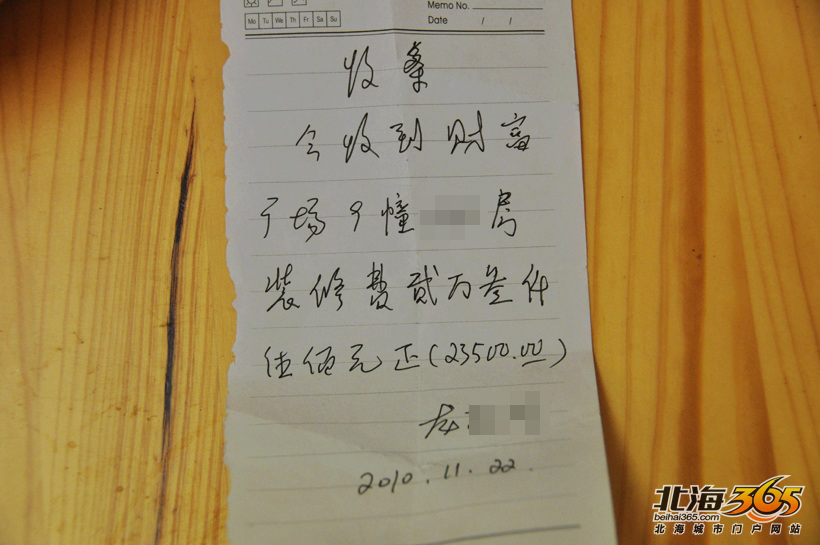 Memo No.
Mo Tu We Th Fr Sa Su
Date / /
收条
今收到财富
广场9幢 房
装修费贰万叁仟
伍佰元正(23500.00)
2010.11.22.
北海365
beihai365.com
北海城市门户网站